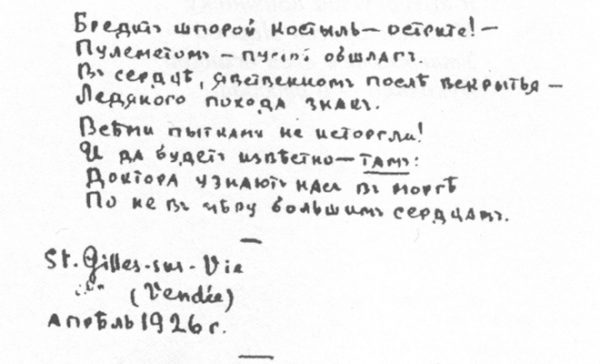 Бредитъ шпорой костыль — острите! —
Пулеметомъ — пустой обшлагъ.
Въ сердцѣ, явственномъ послѣ вскрытья —
Ледяного похода знакъ.
Всѣми пытками не исторгли!
И да будетъ извѣстно — тамъ:
Доктора узнаютъ насъ въ моргѣ
По не въ мѣру большимъ сердцамъ.
St. Gilles-sur-Vie
(Vendée)
апрѣль 1926 г.